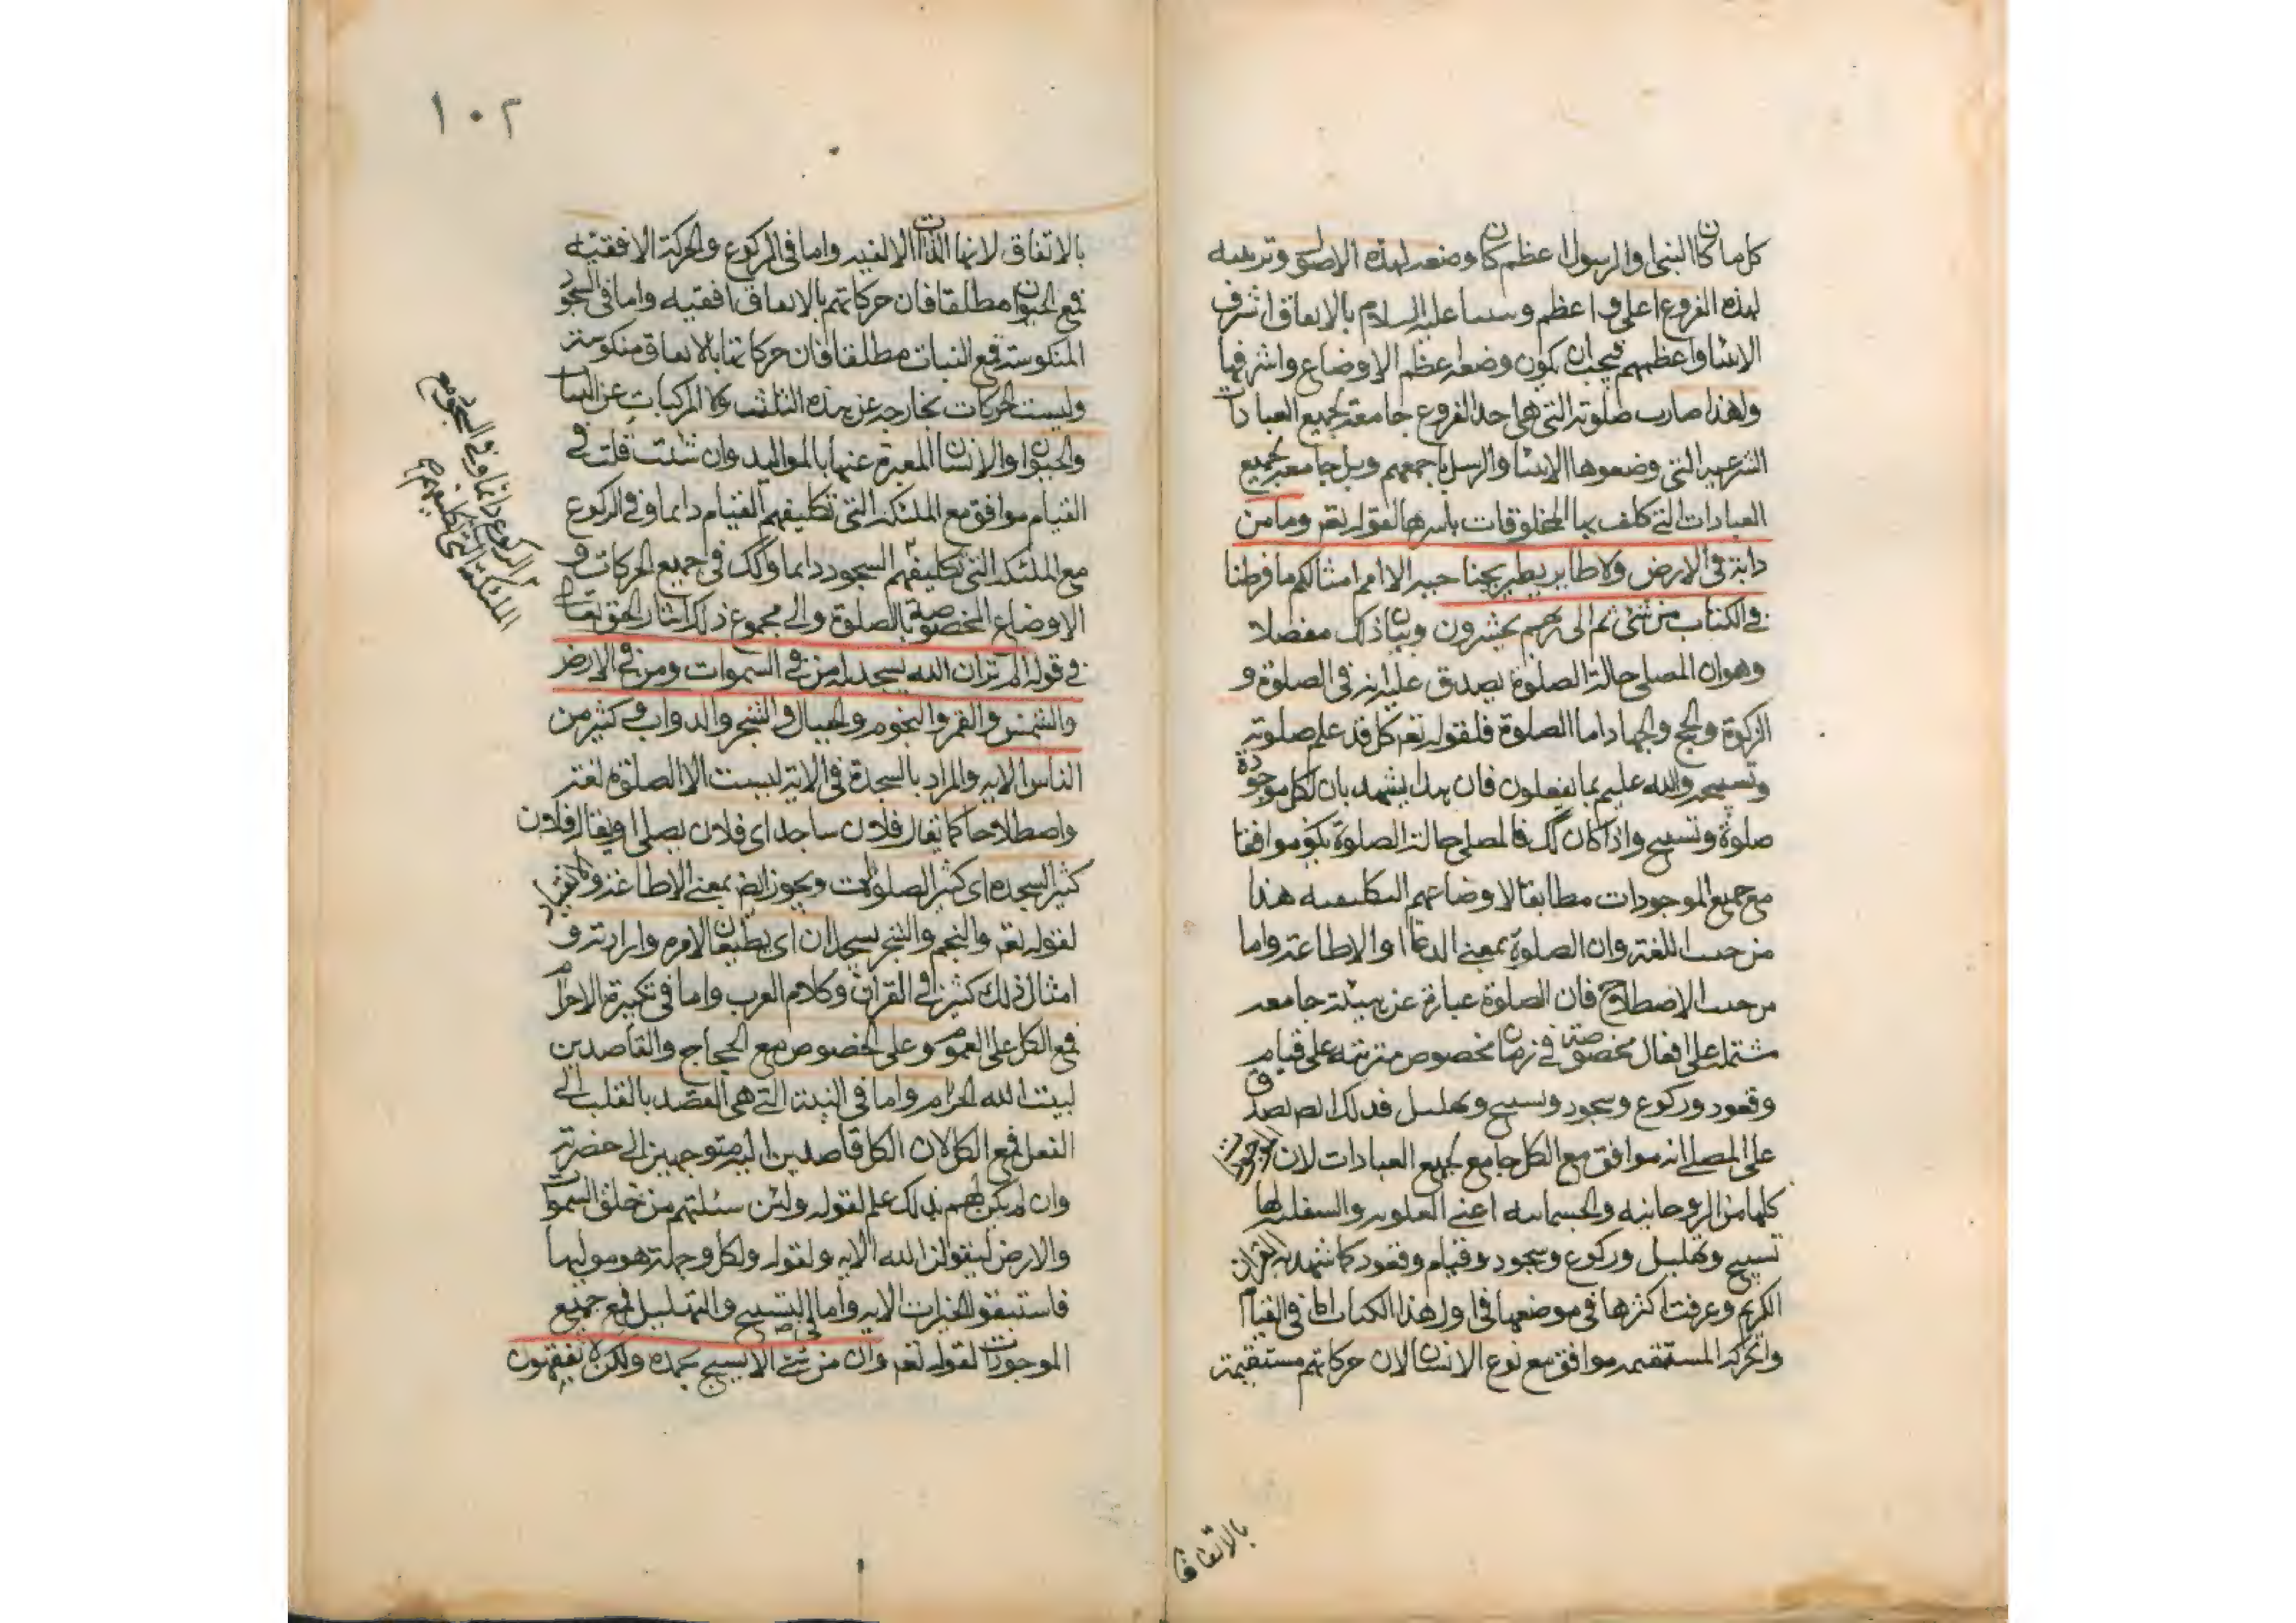 كل ما كان النبى او الرسول اعظم كان وضعه لهذه الاصول وترتيبه
لهذه الفروع اعلى واعظم ونبينا عليه السلام بالاتفاق اشرف
الانبيا واعظمهم فيجب ان يكون وضعه اعظم الاوضاع واشرفها
ولهذا صارت صلوته التى هى احد الفروع جامعة لجميع العبادات
الشرعيه التى وضعوها الانبيا والرسل باجمعهم وبل جامعه لجميع
العبادات التى كلف بها المخلوقات باسرها لقوله تعر وما من
دابة فى الارض ولا طاير يطير بجناحيه الا امم امثالكم ما فرطنا
فى الكتاب من شئ ثم الى ربهم يحشرون وبيان ذلك مفصلا
وهو ان المصلى حالة الصلوة يصدق عليه انه فى الصلوة و
الزكوة والحج والجهاد اما الصلوة فلقوله تعر كل قد علم صلوته
وتسبيحه والله عليم بما يفعلون فان هذا يشهد بان لكل موجودة
صلوة وتسبيح واذا كان كك فالمصلى حالة الصلوة يكون موافقا
مع جميع الموجودات مطابقا لاوضاعهم التكليفيه هذا
من حيث اللغة وان الصلوة بمعنى الدعا او الاطاعة واما
من حيث الاصطلاح فان الصلوة عبارة عن هيئة جامعه
مشتملة على افعال مخصوصة فى زمان مخصوص مترتبة على قيام
وقعود وركوع وسجود وتسبيح وتهليل فذلك ايضا يصدق
على المصلى انه موافق مع الكل جامع لجميع العبادات لان الموجودات
كلها من الروحانيه والجسمانيه اعنى العلويه والسفليه لها
تسبيح وتهليل وركوع وسجود وقيام وقعود كما شهد به القران
الكريم وعرفت اكثرها فى موضعها فى اول هذا الكتاب اما فى القيام
والحركة المستقيمه موافق مع نوع الانسان لان حركاتهم مستقيمة
بالاتفاق
١٠٢
بالاتفاق لانها الذات الالفيه واما فى الركوع والحركة الافقيه
فمع الحيوان مطلقا فان حركاتهم بالاتفاق افقيه واما فى السجود
المنكوسة فمع النبات مطلقا فان حركاتها بالاتفاق منكوسة
وليست الحركات بخارجه عن هذه الثلثه ولا المركبات عن النبات
والحيوان والانسان المعبرة عنها بالمواليد وان شئت قلت فى
القيام موافق مع الملئكة التى تكليفهم القيام دايما وفى الركوع
مع الملئكة التى تكليفهم السجود دايما وكك فى جميع الحركات و
الاوضاع المخصوصة بالصلوة والى مجموع ذلك اشار الحق تعالى
فى قوله الم تر ان الله يسجد له من فى السموات ومن فى الارض
والشمس والقمر والنجوم والجبال والشجر والدواب وكثير من
الناس الايه والمراد بالسجدة فى الاية ليست الا الصلوة لغة
واصطلاحا كما يقال فلان ساجد اى فلان يصلى او يقال فلان
كثير السجده اى كثير الصلوات ويجوز ايضا بمعنى الاطاعة
لقوله تعر والنجم والشجر يسجدان اى يطيعان لامره وارادته و
امثال ذلك كثيرة فى القران وكلام العرب واما فى تكبيرة الاحرام
فمع الكل على العموم وعلى الخصوص مع الحجاج والقاصدين
لبيت الله الحرام واما فى النية التى هى القصد بالقلب الى
الفعل فمع الكل لان الكل قاصدين اليه متوجهين الى حضرته
وان لم يكن لهم بذلك علم لقوله ولئن سئلتهم من خلق السموات
والارض ليقولن الله الايه ولقوله ولكل وجهة هو موليها
فاستبقوا الخيرات الايه واما فى التسبيح والتهليل فمع جميع
الموجودات لقوله تعر وان من شئ الا يسبح بحمده ولكن لا تفقهون
الركوع دايما وفى السجود مع
الملئكة التى تكليفهم